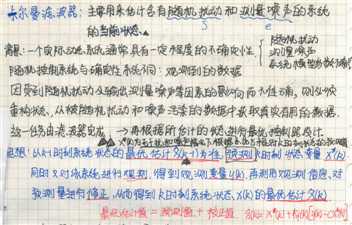 卡尔曼滤波器：主要用来估计含有随机扰动和测量噪声的系统
的当前状态。
背景：一个实际的系统通常具有一定程度的不确定性 { 随机扰动
测量噪声
系统模型参数
随机控制系统与确定性系统不同：观测到的数据
因受到随机扰动及输出测量噪声等因素的影响而不准确，则必须
重构状态，从被随机扰动和噪声污染的数据中获取真实有用的数据。
这一任务由滤波器完成 → 再根据所估计的状态进行最优控制器设计
思想：以k-1时刻系统状态的最优估计x̂(k-1)为准，预测k时刻状态变量x̂'(k)
同时又对该系统进行观测，得到观测变量y(k)，再利用观测信息，对
预测量进行修正，从而得到k时刻系统状态x(k)的最优估计x̂(k)
最优估计值 = 预测值 + 修正值